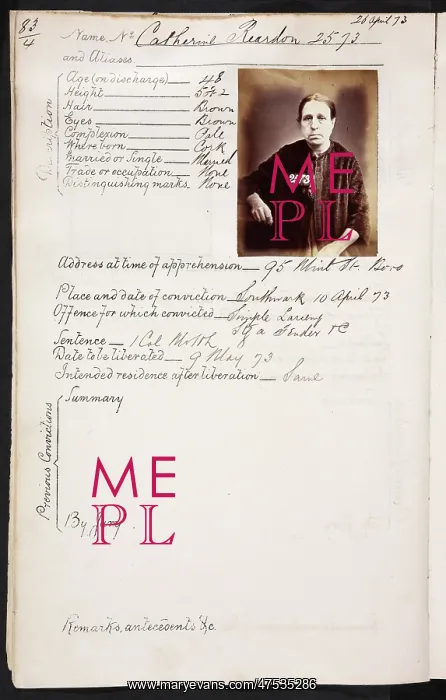 83/4
26 April 73
Name, No. Catherine Reardon 2573
and Aliases.
Description
Age (on discharge) 48
Height 5 ft 2
Hair Brown
Eyes Brown
Complexion Pale
Where born Cork
Married or Single Married
Trade or occupation None
Distinguishing marks None
2573
ME
PL
Address at time of apprehension 95 Mint St. Boro
Place and date of conviction Southwark 10 April 73
Offence for which convicted Simple Larceny
of a Fender
Sentence 1 Cal Month
Date to be liberated 9 May 73
Intended residence after liberation Same
Previous Convictions
Summary
ME
PL
By Jury
Remarks, antecedents &c.
www.maryevans.com/47535286